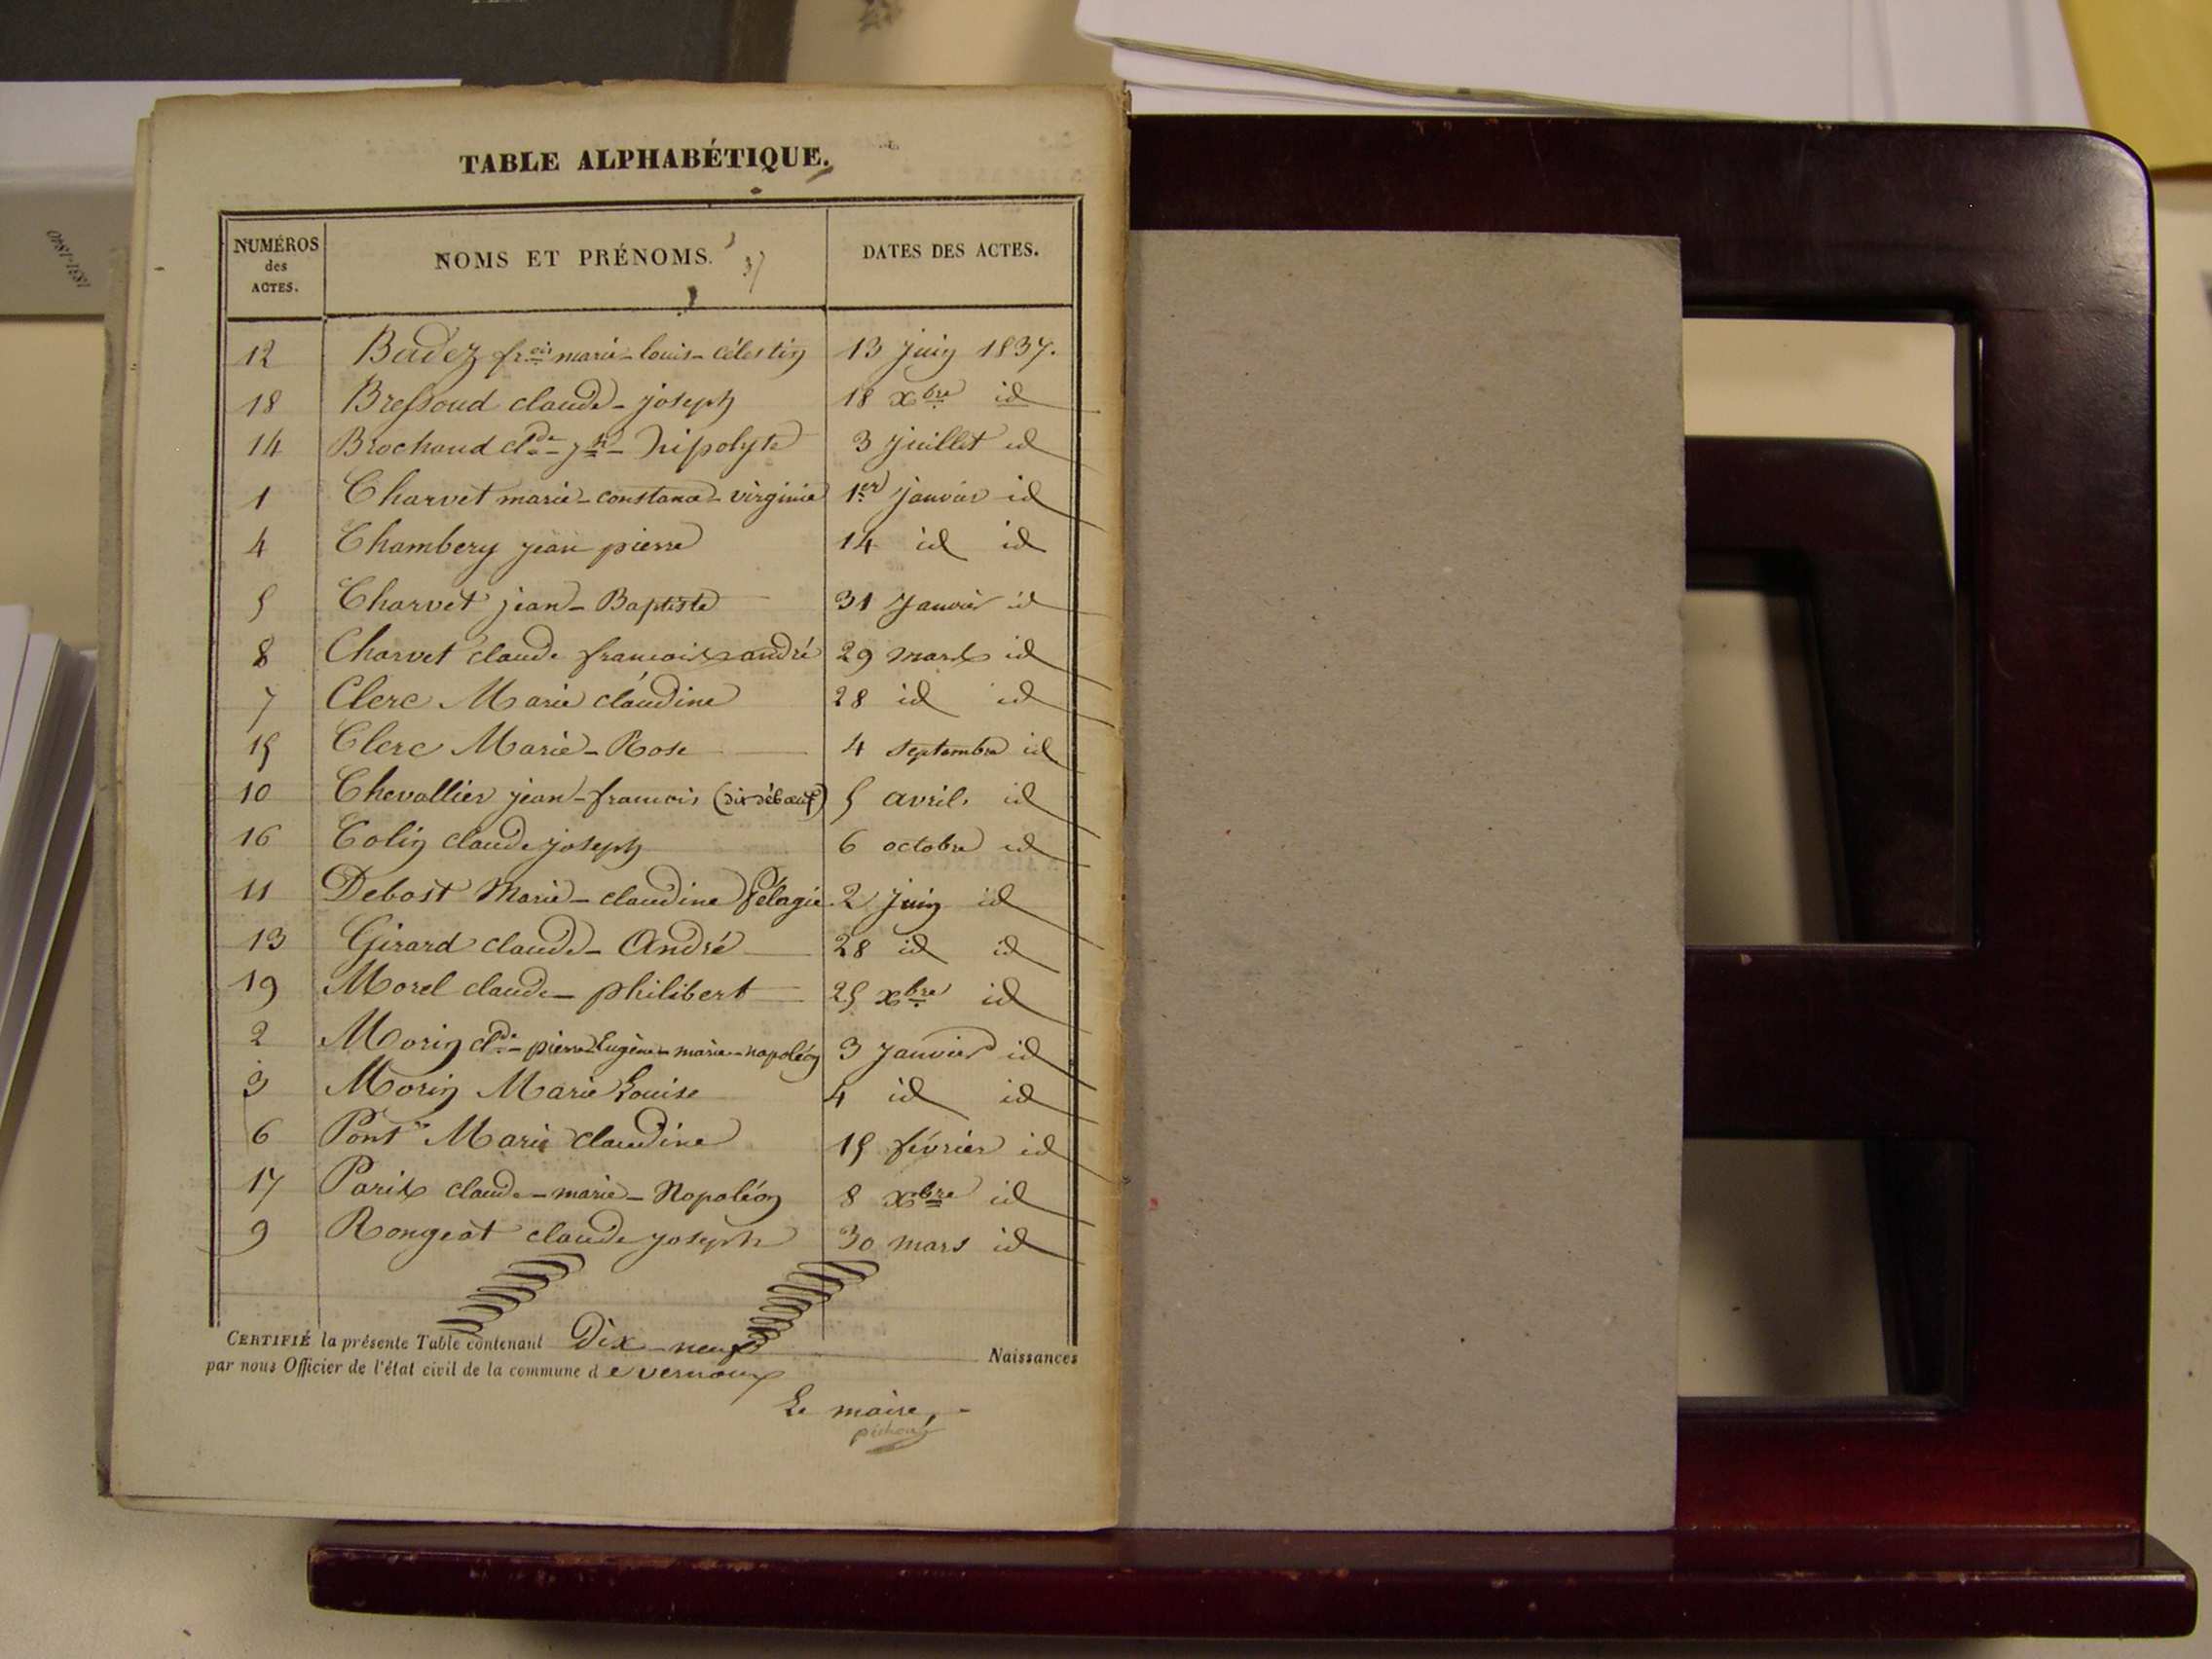 1831-1840
TABLE ALPHABÉTIQUE.
NUMÉROS des ACTES.
NOMS ET PRÉNOMS.
37
DATES DES ACTES.
12 Badez fr.ois marie-louis-célestin 13 juin 1837.
18 Bressoud claude-joseph 18 xbre id
14 Brochaud cl.de-j.h-hipolyte 3 juillet id
1 Charvet marie-constance-virginie 1.er janvier id
4 Chambery jean pierre 14 id id
5 Charvet jean-Baptiste 31 janvier id
8 Charvet claude françois andré 29 mars id
7 Clerc Marie claudine 28 id id
15 Clerc Marie-Rose 4 septembre id
10 Chevallier jean-françois (dit débœuf) 5 avril id
16 Colin claude joseph 6 octobre id
11 Debost Marie-claudine Pélagie 2 juin id
13 Girard claude-André 28 id id
19 Morel claude-philibert 25 xbre id
2 Morin cl.de-pierre Eugène-marie-napoléon 3 janvier id
3 Morin Marie Louise 4 id id
6 Pont Marie claudine 15 février id
17 Paris claude-marie-Napoléon 8 xbre id
9 Rongeat claude joseph 30 mars id
CERTIFIÉ la présente Table contenant Dix-neuf Naissances
par nous Officier de l'état civil de la commune de vernoux
Le maire,